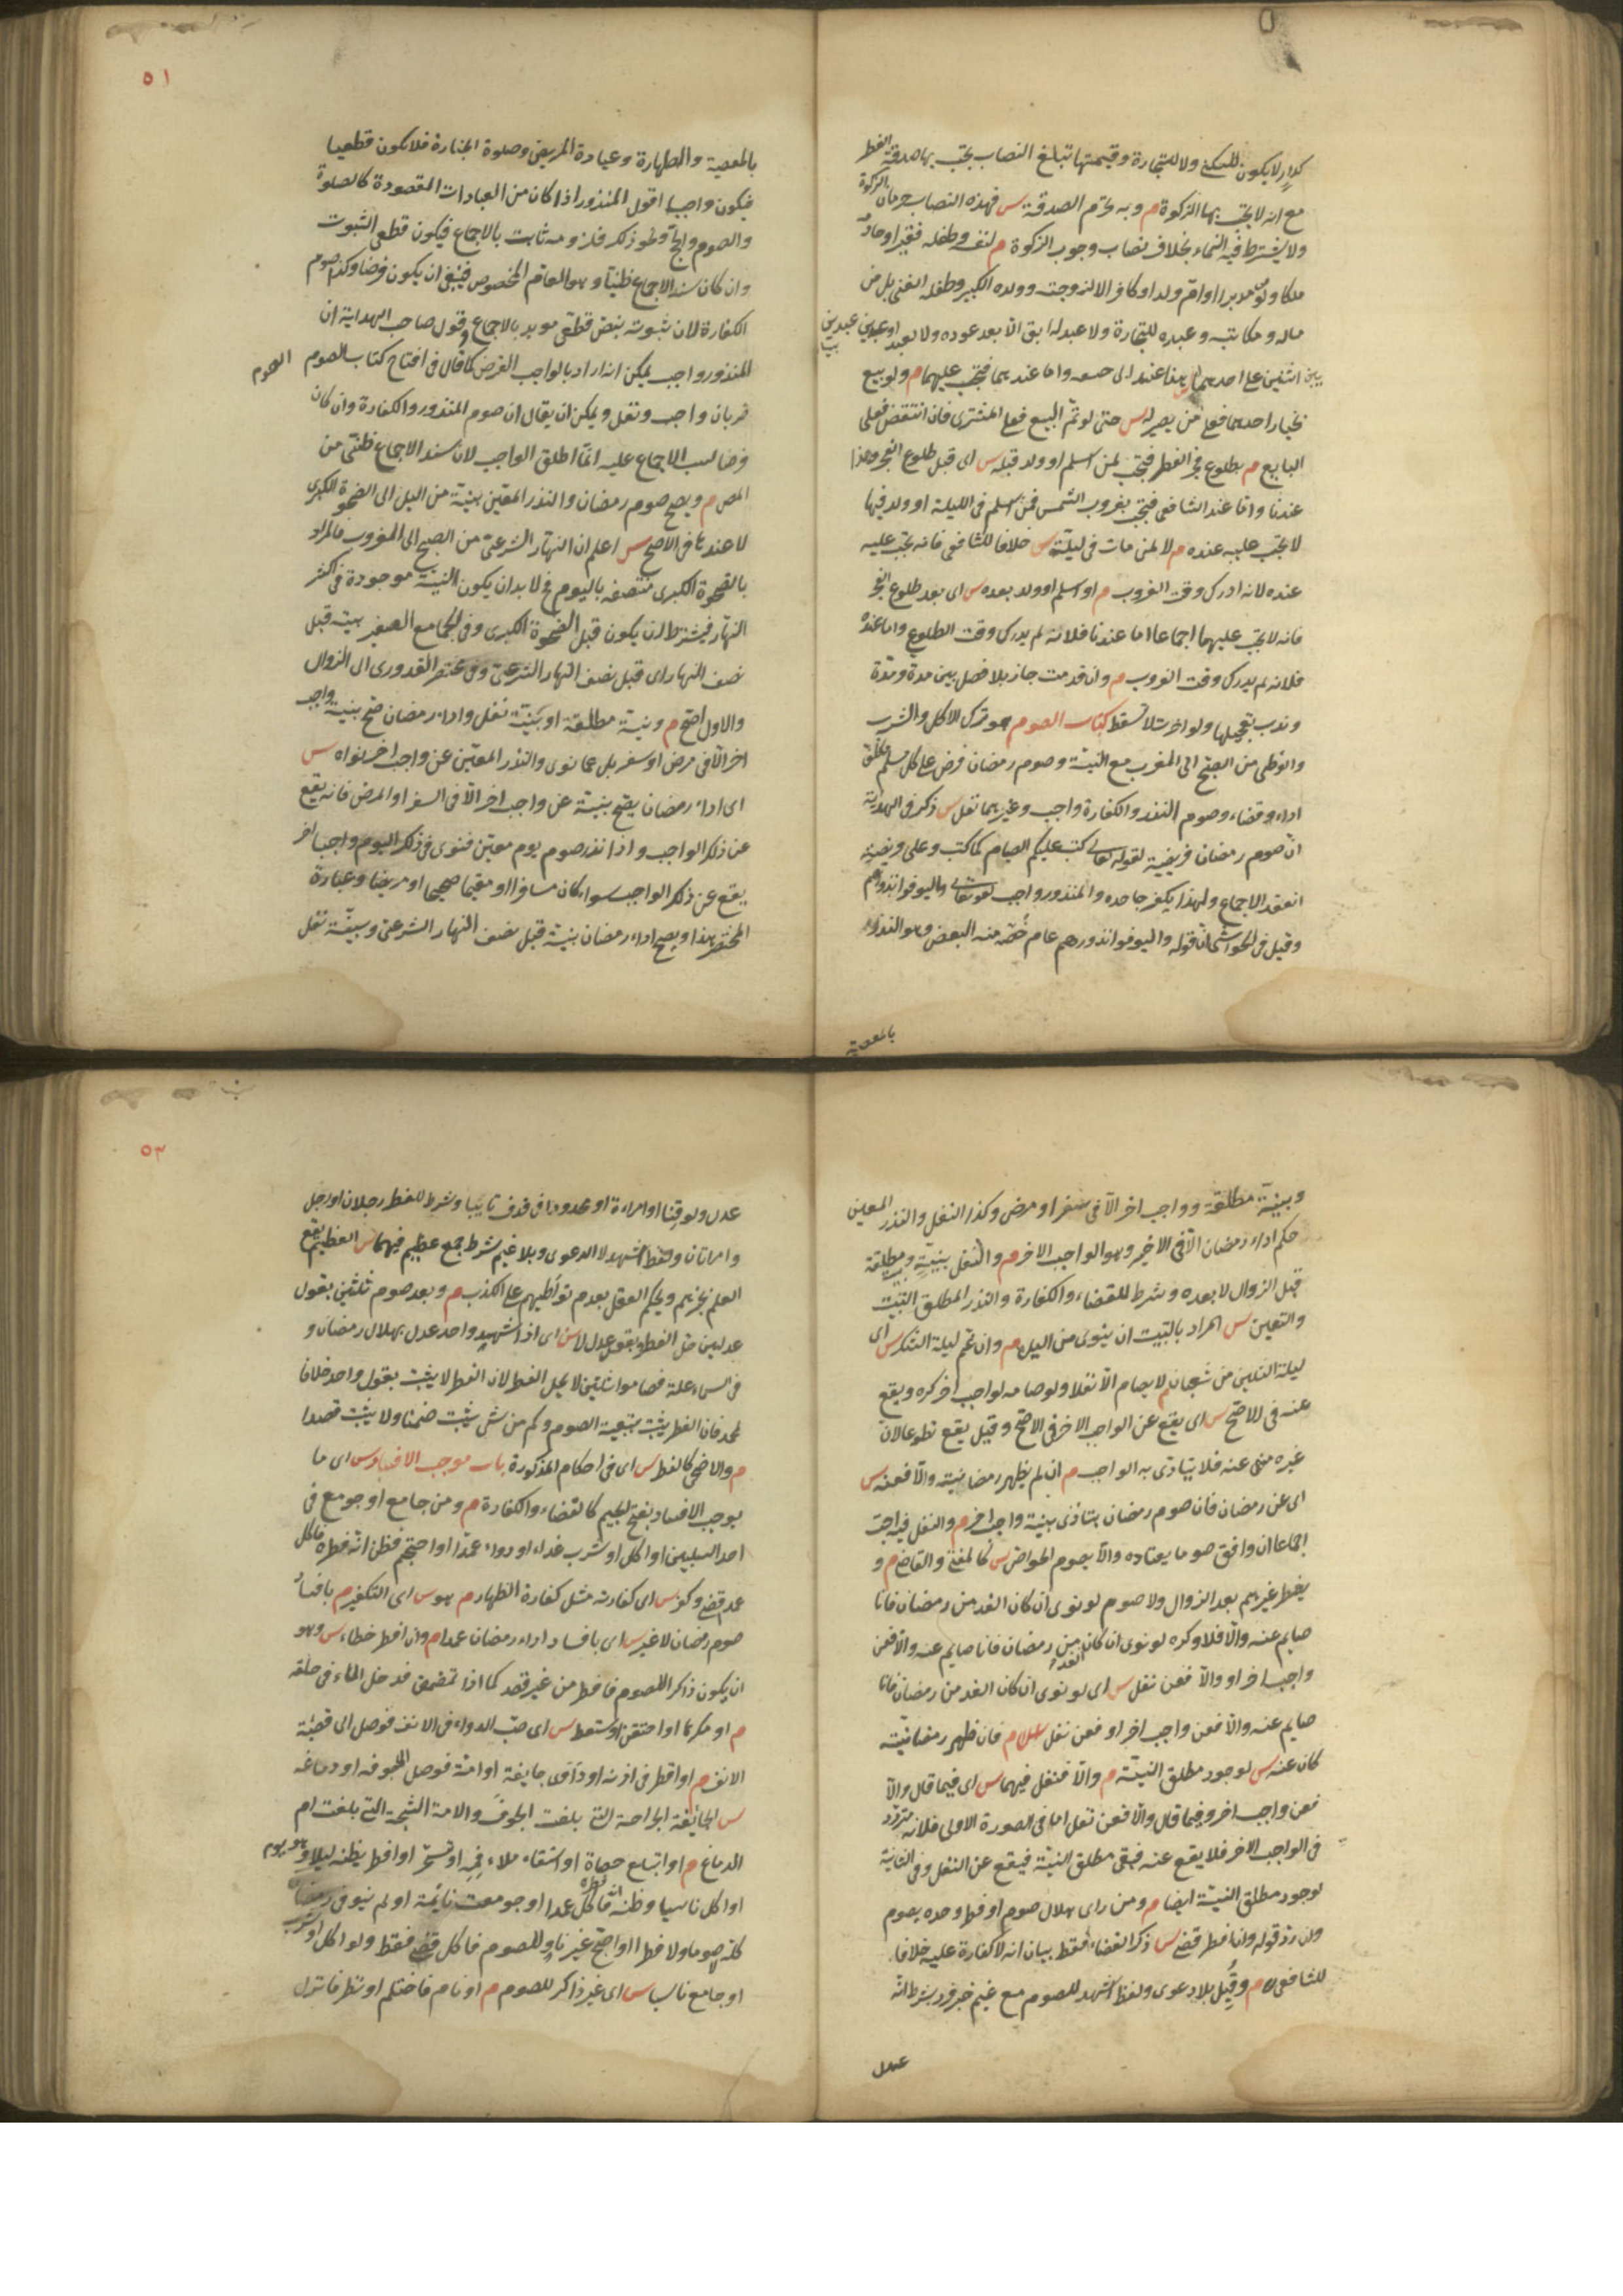 كدار لا يكون للسكنى ولا للتجارة وقيمتها تبلغ النصاب يجب بها صدقة الفطر
مع انه لا يجب بها الزكوة م وبه يحرم الصدقة س فهذه النصاب حرمان الزكوة
ولا يشترط فيه النماء بخلاف نصاب وجوب الزكوة م لنفسه وطفله فقيرا وخادمه
ملكا ولو مدبرا او ام ولد او كافرا لا لزوجته وولده الكبير وطفله الغني بل من
ماله ومكاتبه وعبده للتجارة ولا عبد له ابق الا بعد عوده ولا لعبد او عبيد عبدين
بين اثنين على احدهما س هذا عند ابى حنيفه واما عندهما فتجب عليهما م ولو بيع
بخيار احدهما فعلى من يصير له س حتى لو تم البيع فعلى المشترى فان انتقض فعلى
البايع م بطلوع فجر الفطر فتجب لمن اسلم او ولد قبله س اى قبل طلوع الفجر وهذا
عندنا واما عند الشافعى فتجب بغروب الشمس فمن اسلم فى الليلة او ولد فيها
لا يجب عليه عنده م لا لمن مات فى ليلته س خلافا للشافعى فانه يجب عليه
عنده لانه ادرك وقت الغروب م او اسلم او ولد بعده س اى بعد طلوع الفجر
فانه لا يجب عليهما اجماعا اما عندنا فلانه لم يدرك وقت الطلوع واما عنده
فلانه لم يدرك وقت الغروب م وان قدمت جاز بلا فصل بين مدة ومدة
وندب تعجيلها ولو اخرت لا تسقط كتاب الصوم هو ترك الاكل والشرب
والوطى من الصبح الى المغرب مع النية وصوم رمضان فرض على كل مسلم مكلف
اداء وقضاء وصوم النذر والكفارة واجب وغيرهما نفل س ذكر فى الهداية
ان صوم رمضان فريضة لقوله تعالى كتب عليكم الصيام كما كتب وعلى فرضيته
انعقد الاجماع ولهذا يكفر جاحده والمنذور واجب لقوله تعالى وليوفوا نذورهم
وقيل فى الحواشى ان قوله وليوفوا نذورهم عام خص منه البعض وهو النذر
بالمعصية
٥١
بالمعصية والطهارة وعيادة المريض وصلوة الجنازة فلا يكون قطعيا
فيكون واجبا اقول المنذور اذا كان من العبادات المقصودة كالصلوة
والصوم والحج ونحو ذلك فلزومه ثابت بالاجماع فيكون قطعى الثبوت
وان كان سند الاجماع ظنيا وهو العام المخصوص فينبغى ان يكون فرضا وكذا صوم
الكفارة لان ثبوته بنص قطعى مويد بالاجماع وقول صاحب الهداية ان
المنذور واجب يمكن انه اراد بالواجب الفرض كما قال فى افتتاح كتاب الصوم الصوم
ضربان واجب ونفل ويمكن ان يقال ان صوم المنذور والكفارة وان كان
فرضا لسبب الاجماع عليه انما اطلق الواجب لان سند الاجماع ظنى من
المص م ويصح صوم رمضان والنذر المعين بنية من الليل الى الضحوة الكبرى
لا عندها فى الاصح س اعلم ان النهار الشرعى من الصبح الى المغرب فالمراد
بالضحوة الكبرى منتصفه باليوم ثم لا بد ان يكون النية موجودة فى اكثر
النهار فيشترط ان يكون قبل الضحوة الكبرى وفى الجامع الصغير بنية قبل
نصف النهار اى قبل نصف النهار الشرعى وفى مختصر القدورى الى الزوال
والاول اصح م وبنية مطلقة او بنية نفل واداء رمضان صح بنية واجب
اخر الا فى مرض او سفر بل عما نوى والنذر المعين عن واجب اخر نواه س
اى اداء رمضان يصح بنية عن واجب اخر الا فى السفر او المرض فانه يقع
عن ذلك الواجب واذا نذر صوم يوم معين فنوى فى ذلك اليوم واجبا اخر
يقع عن ذلك الواجب سواء كان مسافرا او مقيما صحيحا او مريضا وعبارة
المختصر هذا ويصح اداء رمضان بنية قبل نصف النهار الشرعى وبنية نفل
وبنية مطلقة وواجب اخر الا فى سفر او مرض وكذا النفل والنذر المعين
حكم اداء رمضان الا فى الاخير وهو الواجب الاخر م والنفل بنيته وبمطلقة
قبل الزوال لا بعده وشرط للقضاء والكفارة والنذر المطلق التبييت
والتعيين س المراد بالتبييت ان ينوى من الليل م وان غم ليلة الشك س اى
ليلة الثلثين من شعبان م لا يصام الا نفلا ولو صامه لواجب اخر كره ويقع
عنه فى الاصح س اى يقع عن الواجب الاخر فى الاصح وقيل يقع تطوعا لان
غيره منهى عنه فلا يتادى به الواجب م ان لم يظهر رمضانيته والا فعنه س
اى عن رمضان فان صوم رمضان يتادى بنية واجب اخر م والنفل فيه احب
اجماعا ان وافق صوما يعتاده والا يصوم الخواص س كالمفتى والقاضى م و
يفطر غيرهم بعد الزوال ولا صوم لو نوى ان كان الغد من رمضان فانا
صايم عنه والا فلا وكره لو نوى ان كان الغد من رمضان فانا صايم عنه والا فعن
واجب اخر او والا فعن نفل س اى لو نوى ان كان الغد من رمضان فانا
صايم عنه والا فعن واجب اخر او فعن نفل م فان ظهر رمضانيته
كان عنه س لوجود مطلق النية م والا فنفل فيهما س اى فيما قال والا
فعن واجب اخر وفيما قال والا فعن نفل اما فى الصورة الاولى فلانه متردد
فى الواجب الاخر فلا يقع عنه فبقى مطلق النية فيقع عن النفل وفى الثانية
لوجود مطلق النية ايضا م ومن راى هلال صوم او فطر وحده يصوم
وان رد قوله وان افطر قضى س ذكر القضاء فقط بيان انه لا كفارة عليه خلافا
للشافعى م وقبل بلا دعوى ولفظ اشهد للصوم مع غيم خبر فرد بشرط انه
عدل
٥٣
عدل ولو قنا او امراءة او محدودا فى قذف تايبا وشرط للفطر رجلان او رجل
وامراتان ولفظ اشهد لا الدعوى وبلا غيم شرط جمع عظيم فيهما س العظيم يقع
العلم بخبرهم ويحكم العقل بعدم تواطيهم على الكذب م وبعد صوم ثلثين بقول
عدلين حل الفطر وبقول عدل لا س اى اذا شهد واحد عدل بهلال رمضان و
فى السماء علة فصاموا ثلثين لا يحل الفطر لان الفطر لا يثبت بقول واحد خلافا
لمحمد فان الفطر يثبت بتبعية الصوم وكم من شى يثبت ضمنا ولا يثبت قصدا
م والاضحى كالفطر س اى فى احكام المذكورة باب موجب الافساد س اى ما
يوجب الافساد بفتح الجيم كالقضاء والكفارة م ومن جامع او جومع فى
احد السبيلين او اكل او شرب غداء او دواء عمدا او احتجم فظن انه فطره فاكل
عمدا قضى وكفر س اى كفارته مثل كفارة الظهار م هو س اى التكفير م بافساد
صوم رمضان لا غير س اى بافساد اداء رمضان عمدا م وان افطر خطاء س وهو
ان يكون ذاكرا للصوم فافطر من غير قصد كما اذا تمضمض فدخل الماء فى حلقه
م او مكرها او احتقن او استعط س اى صب الدواء فى الانف فوصل الى قصبة
الانف م او اقطر فى اذنه او داوى جايفة او امة فوصل الى جوفه او دماغه
س الجائفة الجراحة التى بلغت الجوف والامة الشجة التى بلغت ام
الدماغ م او ابتلع حصاة او استقاء ملاء فمه او تسحر او افطر يظنه ليلا وهو يوم
او اكل ناسيا وظن انه فطره فاكل عمدا او جومعت نايمة او لم ينو فى رمضان
كله صوما ولا فطرا او اصبح غير ناو للصوم فاكل قضى فقط ولو اكل او شرب
او جامع ناسيا س اى غير ذاكر للصوم م او نام فاحتلم او نظر فانزل